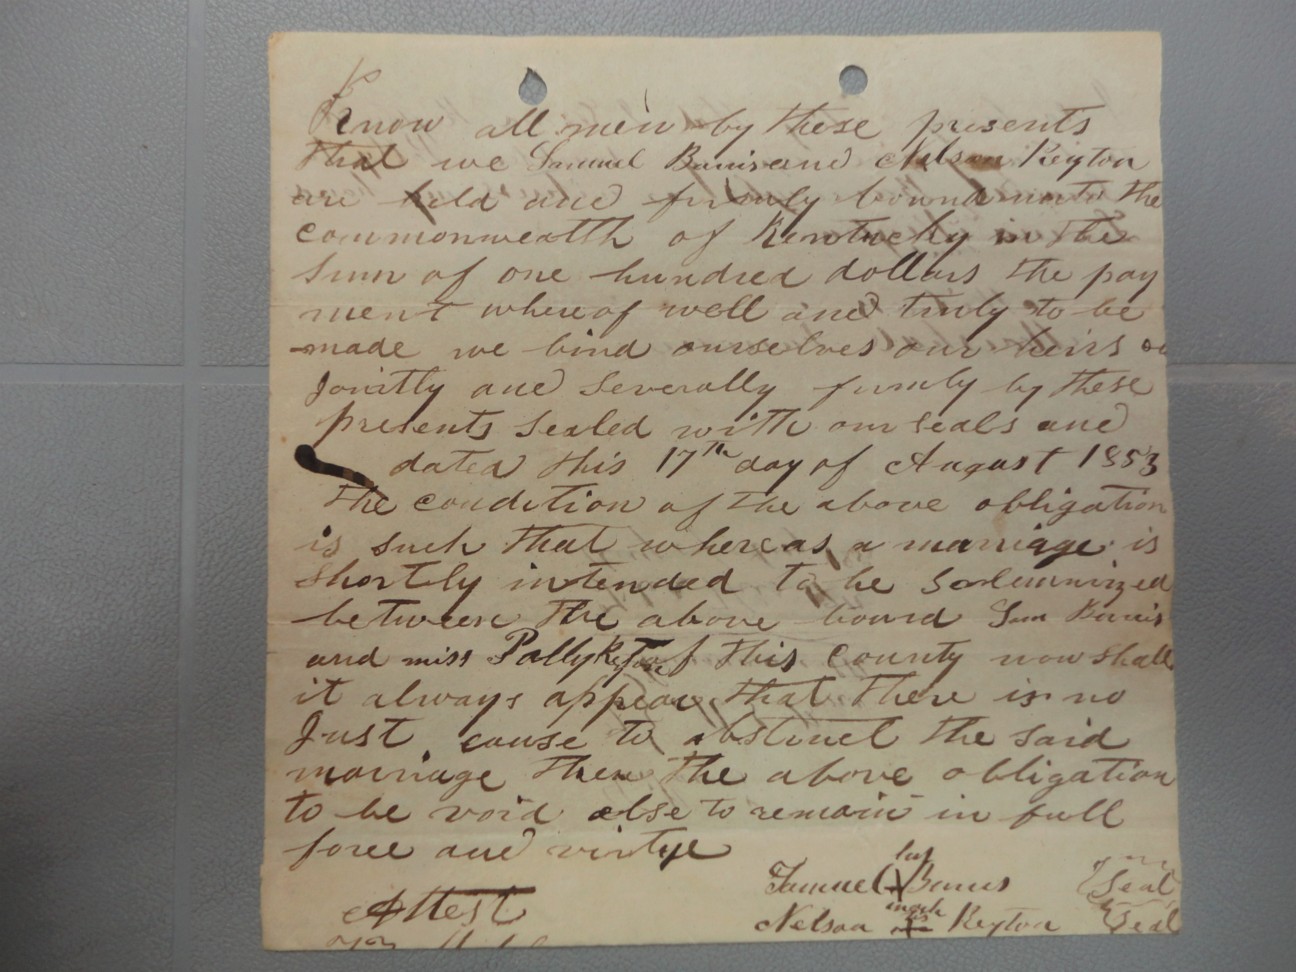 Know all men by these presents
that we Samuel and Nelson Keyton
are held and firmly bound unto the
commonwealth of Kentucky in the
Sum of one hundred dollars the pay
ment where of well and truly to be
made we bind ourselves our heirs
Jointly and Severally firmly by these
presents Sealed with our seals and
dated this 17th day of August 1853
the condition of the above obligation
is such that whereas a marriage is
Shortly intended to be Solemnized
between the above bound Sam
and miss Polly Keyton of this County now shall
it always appear that there is no
Just cause to obstruct the said
marriage then the above obligation
to be void else to remain in full
force and virtue
his
Samuel X Seal
mark
his
Nelson X Keyton Seal
Attest